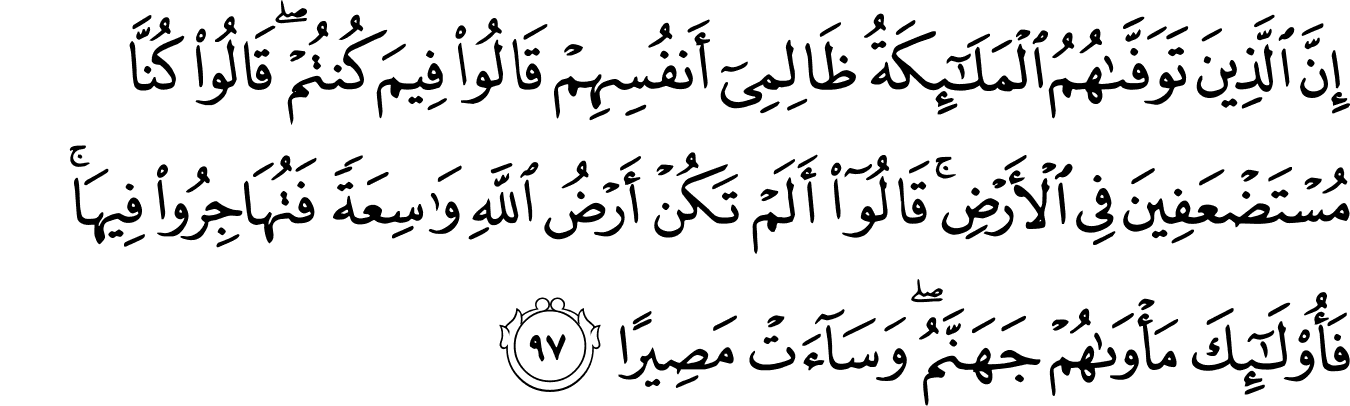 إِنَّ ٱلَّذِينَ تَوَفَّىٰهُمُ ٱلْمَلَـٰٓئِكَةُ ظَالِمِىٓ أَنفُسِهِمْ قَالُوا۟ فِيمَ كُنتُمْ ۖ قَالُوا۟ كُنَّا
مُسْتَضْعَفِينَ فِى ٱلْأَرْضِ ۚ قَالُوٓا۟ أَلَمْ تَكُنْ أَرْضُ ٱللَّهِ وَٰسِعَةً فَتُهَاجِرُوا۟ فِيهَا ۚ
فَأُو۟لَـٰٓئِكَ مَأْوَىٰهُمْ جَهَنَّمُ ۖ وَسَآءَتْ مَصِيرًا ٩٧